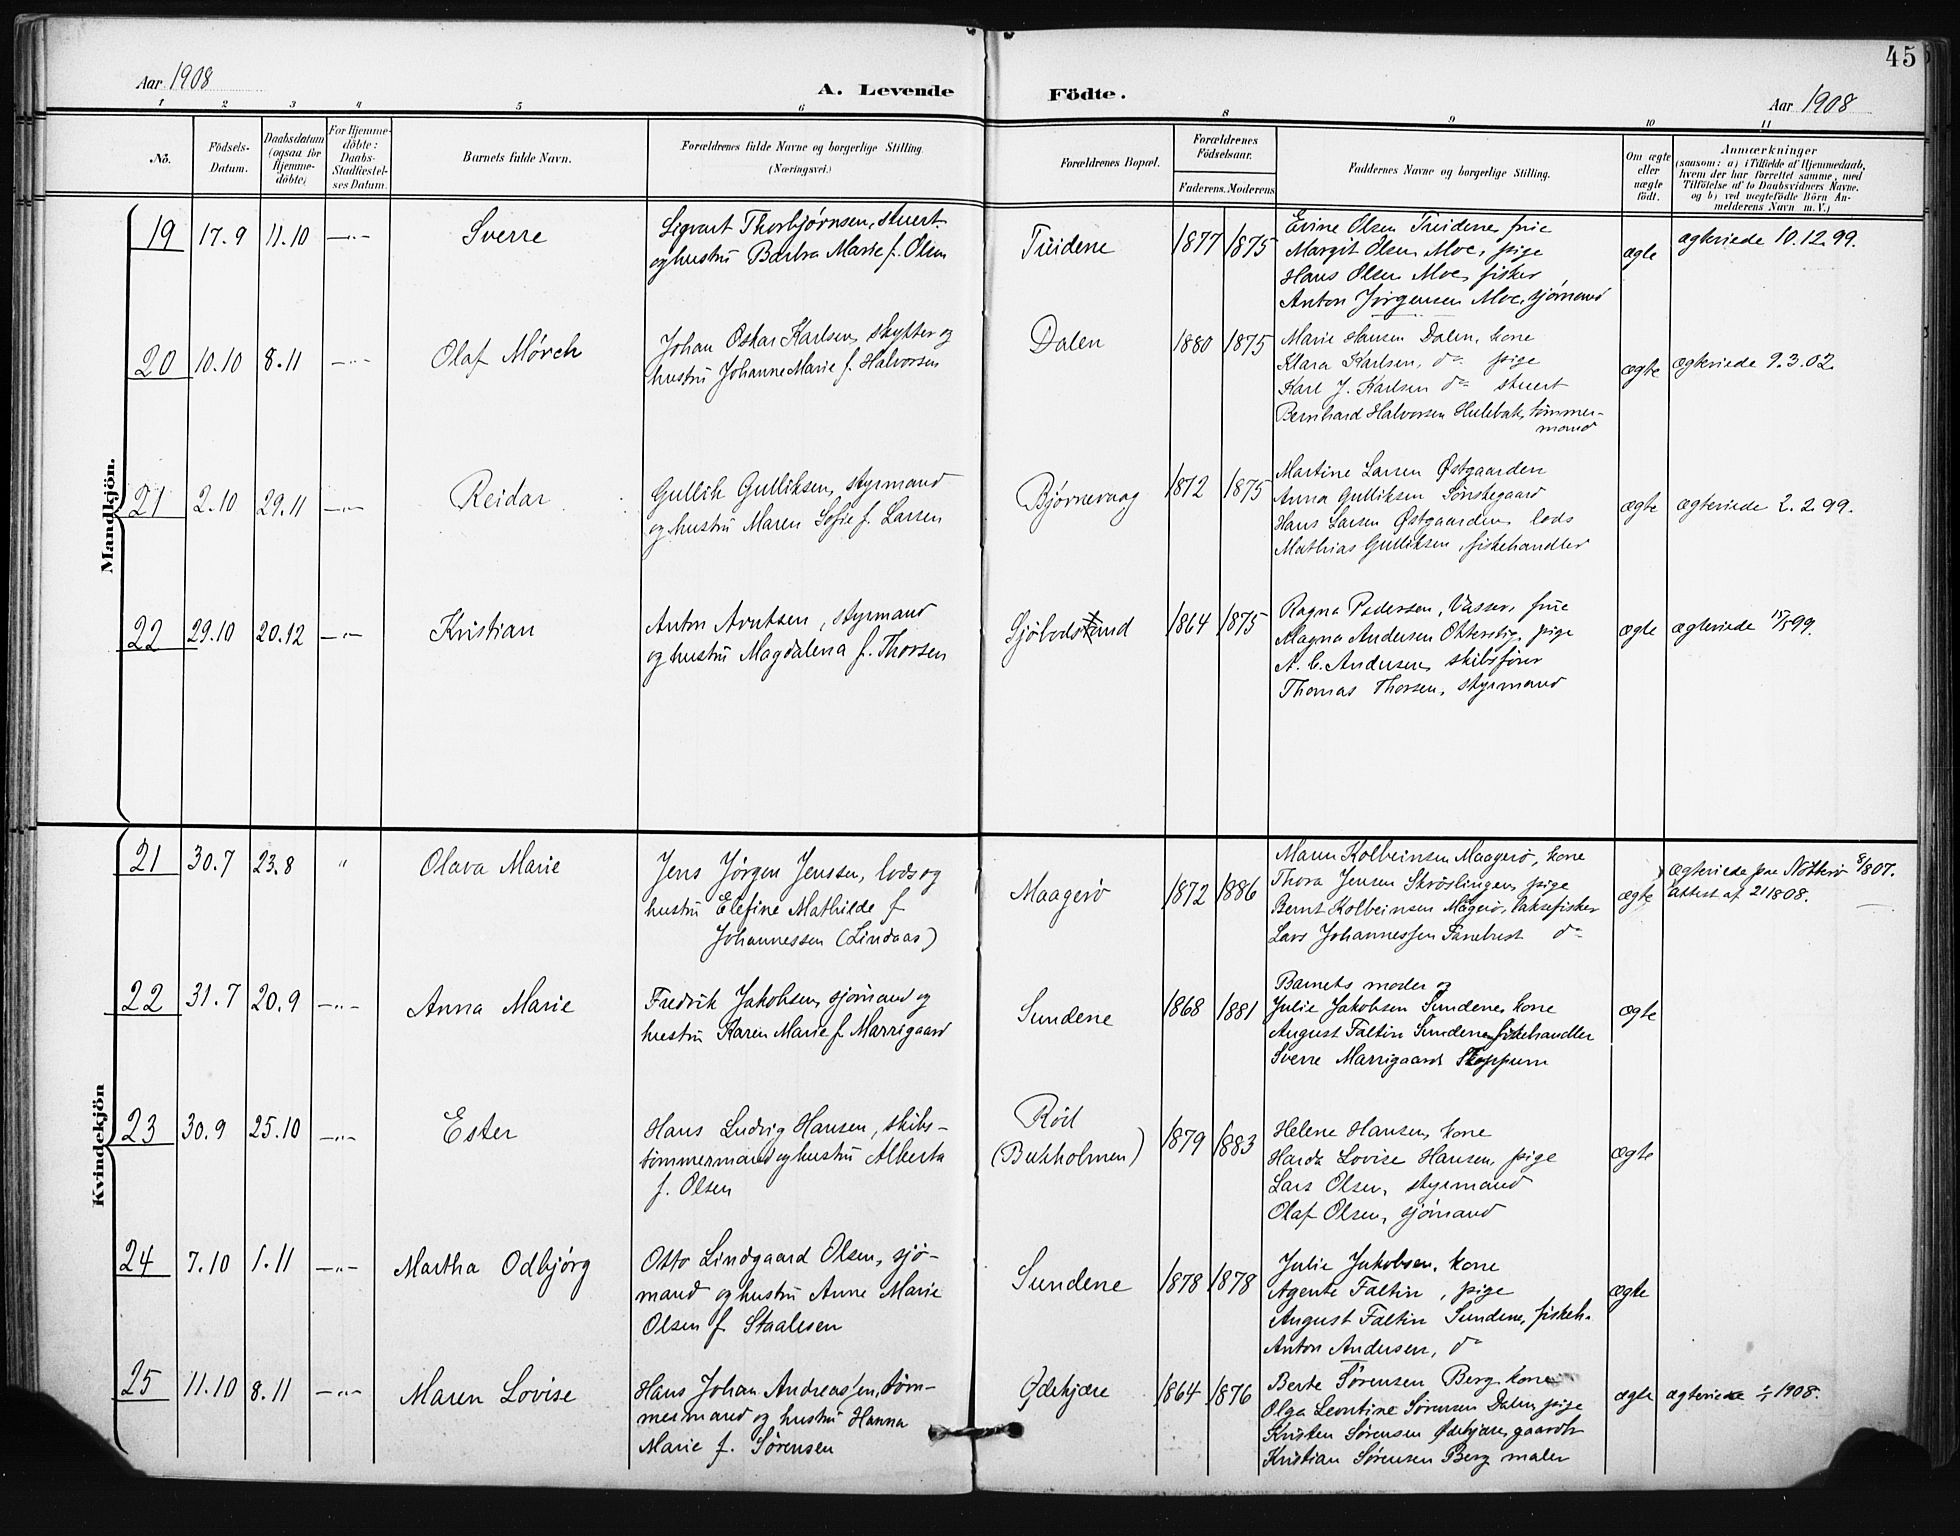 45
Aar 1908
A. Levende Födte.
Aar 1908
1 2 3 4 5 6 8 9 10 11
No.
Födsels-Datum.
Daabsdatum (ogsaa for Hjemme-döbte)
For Hjemme-döbte: Daabs-Stadfæstel-ses Datum.
Barnets fulde Navn.
Forældrenes fulde Navne og borgerlige Stilling. (Næringsvei.)
Forældrenes Bopæl.
Forældrenes Födselsaar.
Faderens. Moderens
Faddernes Navne og borgerlige Stilling.
Om ægte eller uægte födt.
Anmærkninger
(saasom: a) i Tilfælde af Hjemmedaab, hvem der har forrettet samme, med Tilföielse af to Daabsvidners Navne. og b) ved uægtefödte Börn An-melderens Navn m. V.)
Mandkjön.
19 17.9 11.10 —"—
Sverre
Sigvart Thorbjørnsen, stuert
og hustru Barbra Marie f. Olsen
1877 1875
Margit Olsen Moe, pige
Hans Olsen Moe, fisker
Anton Jörgensen Moe, sjömand
ægte
ægteviede 10.12.99.
20 10.10 8.11 —"—
Olaf Mörch
Johan Oskar Karlsen, skytter og
hustru Johanne Marie f. Halvorsen
Dalen
1880 1875
Marie Hansen Dalen, kone
Klara Karlsen, do pige
Karl J. Karlsen do stuert
Bernhard Halvorsen Hulebak, tømmer-
mand
ægte
ægteviede 9.3.02.
21 2.10 29.11 —"—
Reidar
Gullik Gulliksen, styrmand
og hustru Maren Sofie f. Larsen
Bjørnevaag
1872 1875
Martine Larsen Østgaarden
Anna Gulliksen Sønstegaard
Hans Larsen Østgaarden, lods
Mathias Gulliksen, fiskehandler
ægte
ægteviede 2.2.99.
22 29.10 20.12 —"—
Kristian
Anton Arntsen, styrmand
og hustru Magdalena f. Thorsen
1864 1875
Ragna Pedersen, Vasser, frue
Magna Andersen pige
A. C. Andersen, skibsfører
Thomas Thorsen, styrmand
ægte
ægteviede 15/5 99.
Kvindekjön
21 30.7 23.8 "
Olava Marie
Jens Jörgen Jenssen, lods og
hustru Elefine Mathilde f
Johannessen (Lindaas)
Maagerö
1872 1886
Maren Kolbeinsen Maagerö, kone
Thora Jensen Strøslingen, pige
Bernt Kolbeinsen Magerö, laksefisker
Lars Johannessen do
ægte
ægteviede paa Nötterö 8/8 07.
attest af 2/1 808.
22 31.7 20.9 —"—
Anna Marie
Fredrik Jakobsen, sjömand og
hustru Karen Marie f Marrigaard
Sundene
1868 1881
Barnets moder og
Julie Jakobsen Sundene, kone
August Faltin Sundene, fiskehandler
Sverre Marrigaard Skoppum
ægte
23 30.9 25.10 —"—
Ester
Hans Ludvig Hansen, skibs-
tømmermand og hustru Alberta
f. Olsen
Röd
(Bukholmen)
1879 1883
Helene Hansen, kone
Harda Lovise Hansen, pige
Lars Olsen, styrmand
Olaf Olsen, sjömand
ægte
24 7.10 1.11 —"—
Martha Odbjörg
Otto Lindgaard Olsen, sjö-
mand og hustru Anne Marie
Olsen f Staalesen
Sundene
1878 1878
Julie Jakobsen, kone
Agente Faltin, pige
August Faltin Sundene, fiskeh.
Anton Andersen, do
ægte
25 11.10 8.11 —"—
Maren Lovise
Hans Johan Andreassen, töm-
mermand og hustru Hanna
Marie f. Sørensen
Ødekjære
1864 1876
Berte Sørensen Berg, kone
Olga Leontine Sørensen Dalen, pige
Kristen Sørensen Ødekjære, gaardbr
Kristian Sørensen Berg maler
ægte
ægteviede 1908.